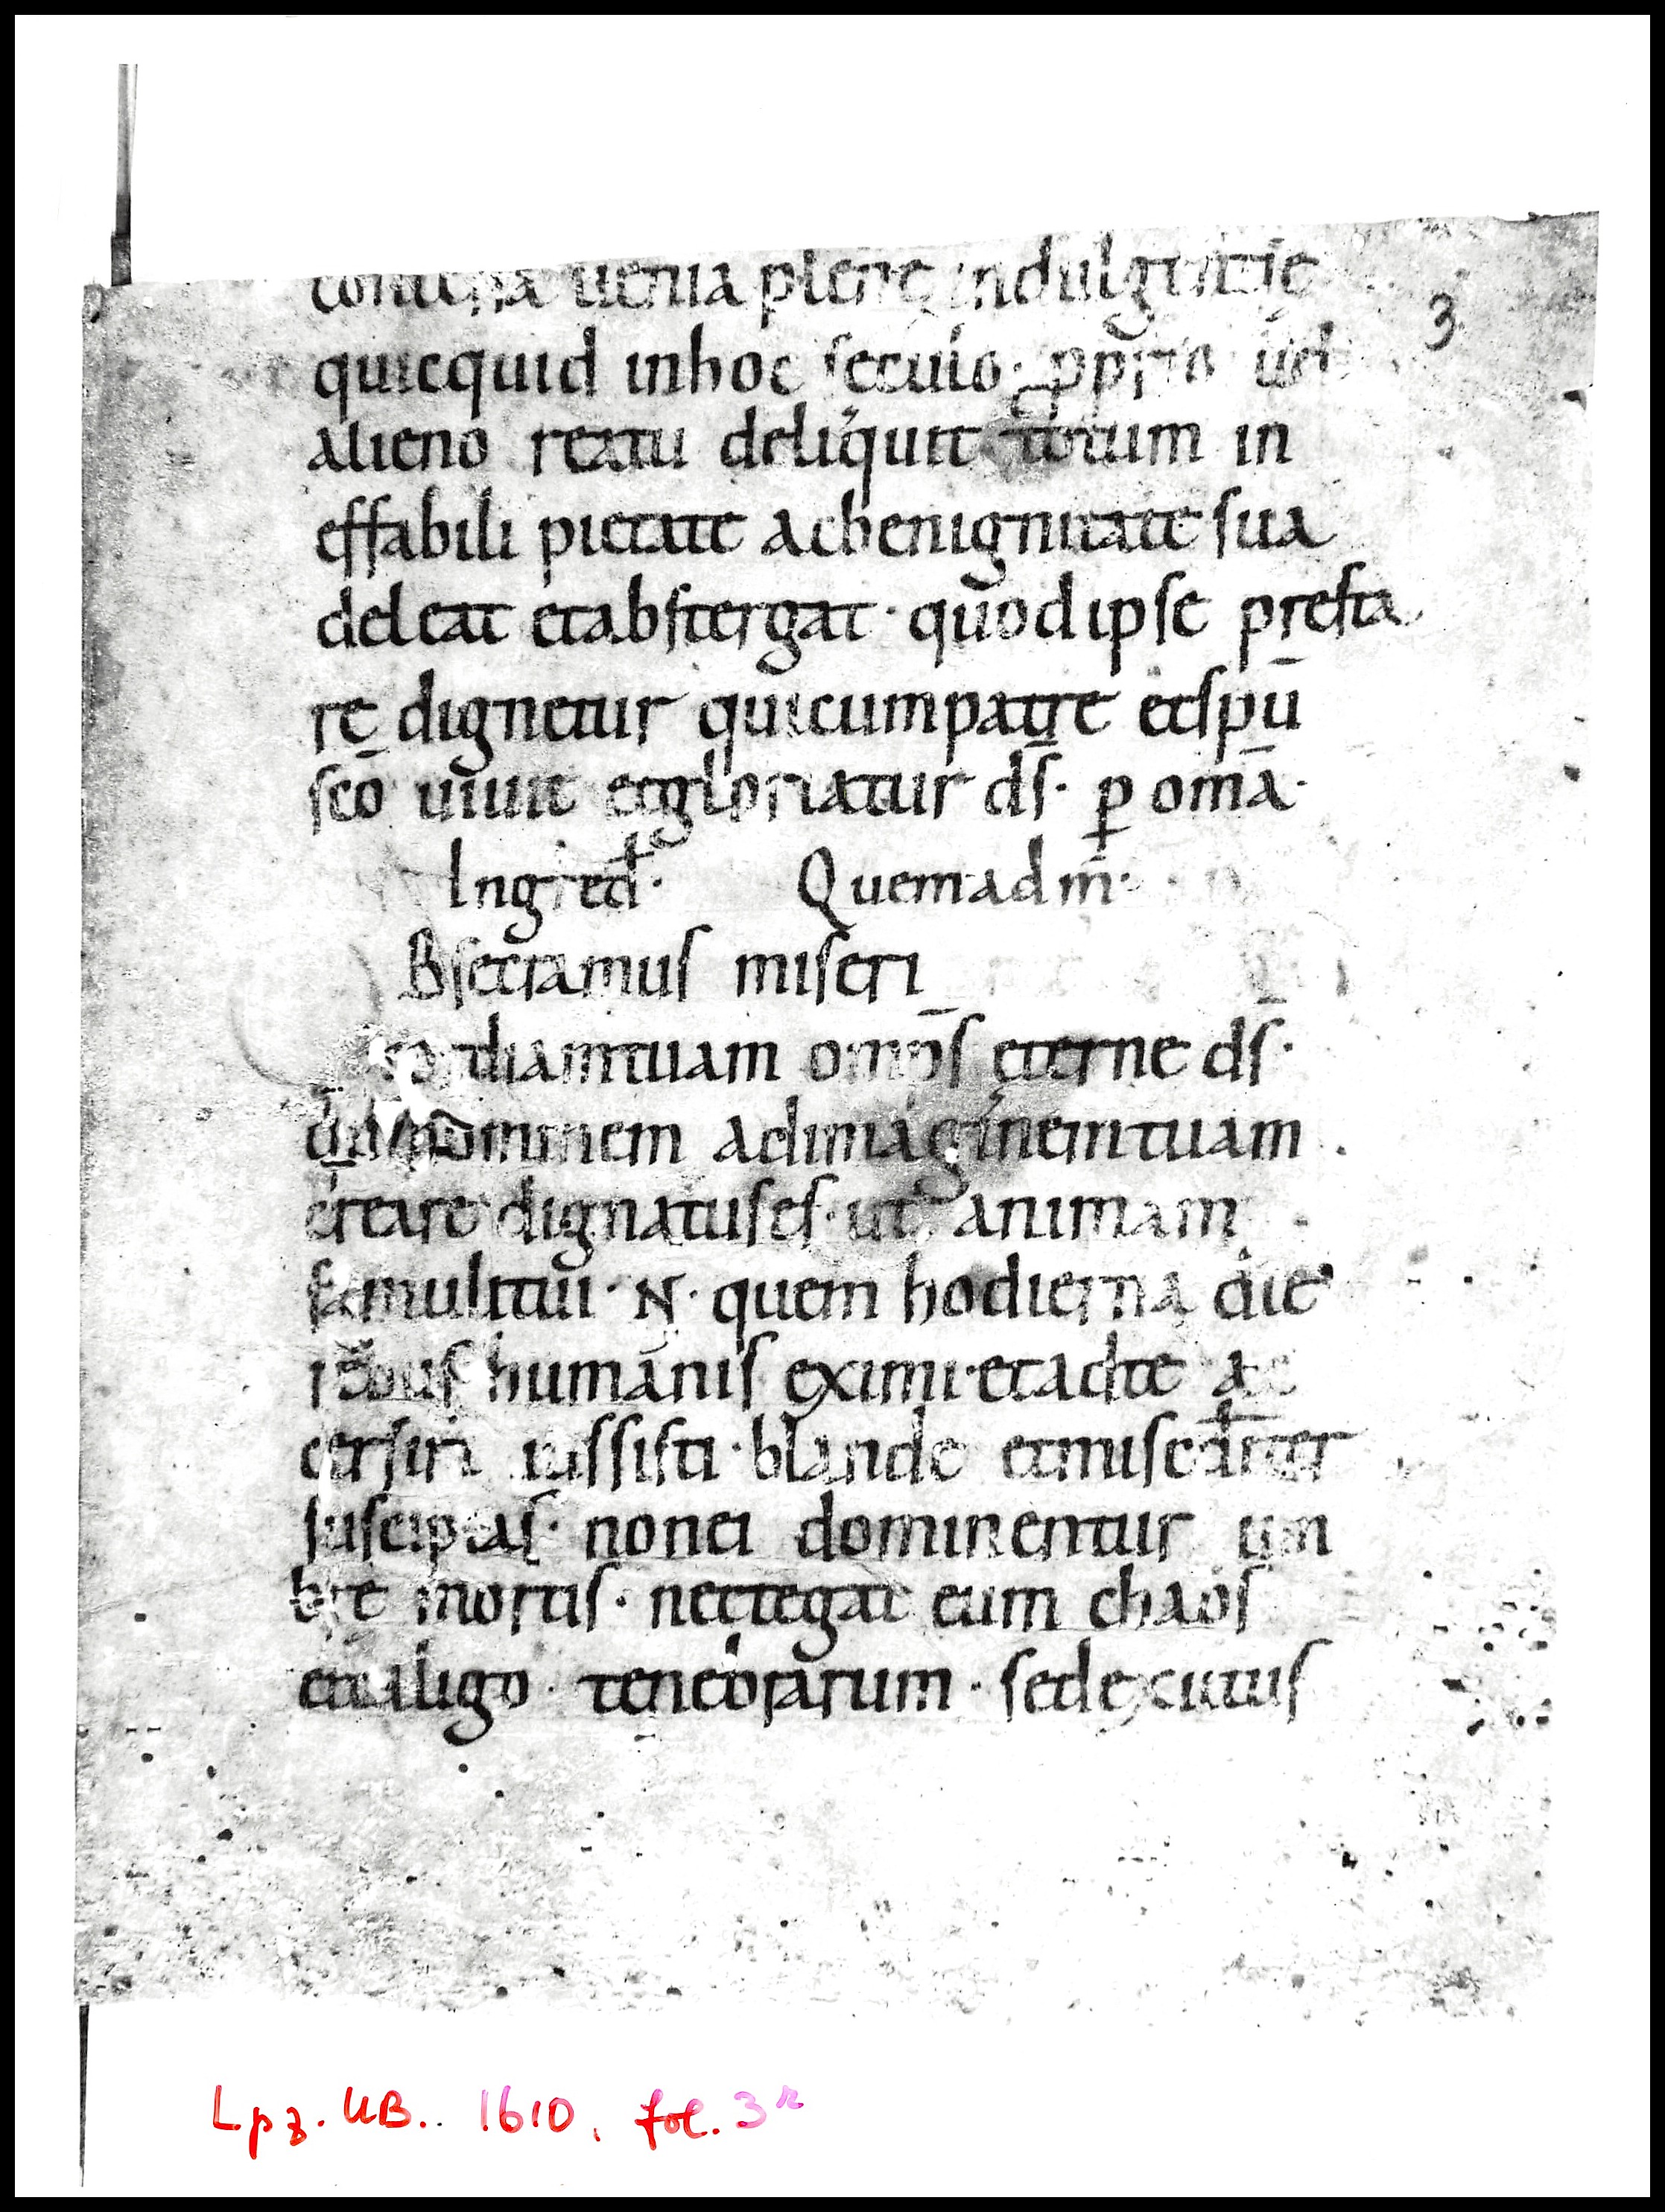 uenia plene indulgentie
3
quicquid inhoc seculo· pprio uel
alieno reatu deliquit totum in
effabili pietate acbenignitate sua
deleat etabstergat· quodipse presta
rę dignetur quicumpatre etspū
sc̄o uiuit etgloriatur ds̄· ꝑ om̄a·
Ingred̄· Quemadm̄·
Bsecramus miseri
diamtuam omp̄s ęterne ds̄·
hominem adimaginemtuam
creare dignatuses· ut animam
famulitui· N· quem hodierna die
rebus humanis eximi·etadte ac
cersiri iussisti· blande etmisecd̄iter
suscipias· nonei dominentur um
bre mortis· nectegat eum chaos
etcaligo· tenebrarum· sedexcutus
Lpz. UB. 1610, fol. 3r